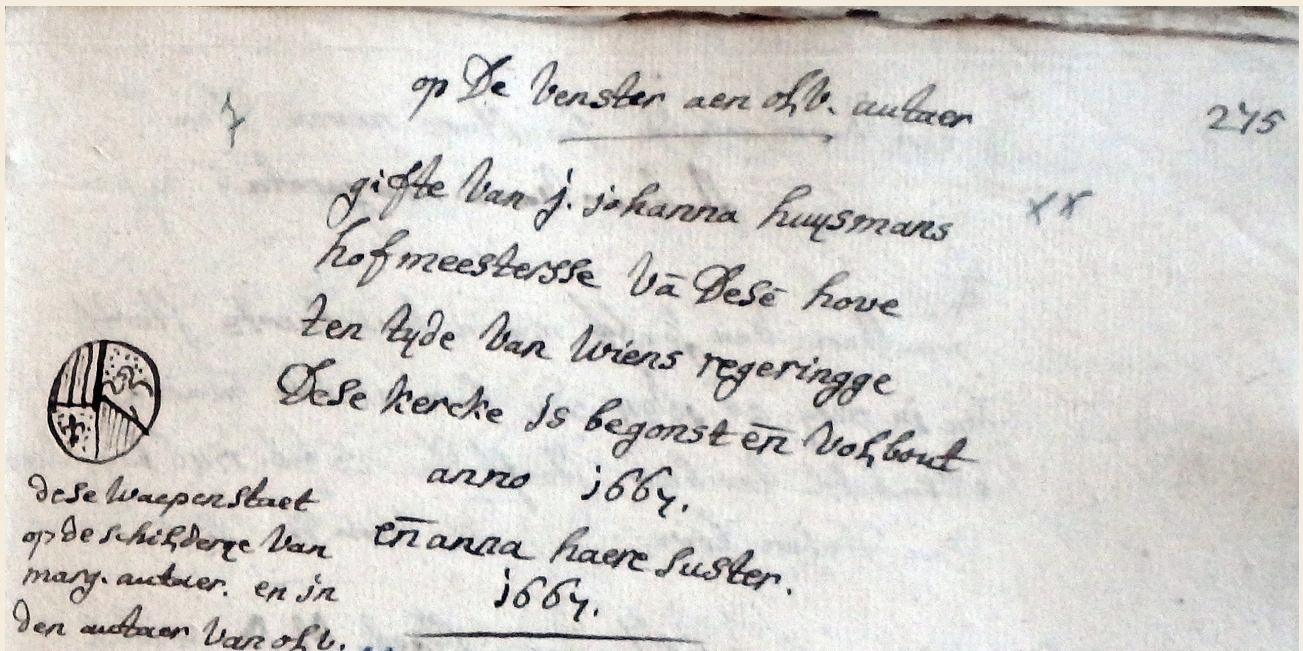 op De Venster aen olV. autaer
275
gifte Van j. johanna huysmans
xx
hofmeestersse Vā Desē hove
ten tyde Van Wiens regeringge
Dese kercke is begonst eñ Volbout
anno j667.
eñ anna haere suster.
j667.
dese Waepen staet
op de schilderye Van
marg. autaer. en jn
den autaer Van olV.